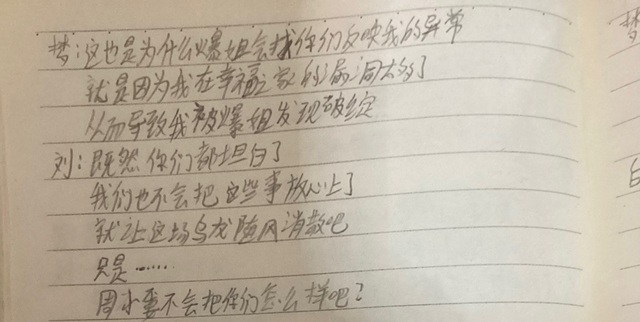 梦：这也是为什么爆姐会找你们反映我的异常
就是因为我在幸福家的漏洞太多了
从而导致我被爆姐发现破绽
刘：既然你们都坦白了
我们也不会把这些事放心上了
就让这场乌龙随风消散吧
只是……
周小要不会把你们怎么样吧？